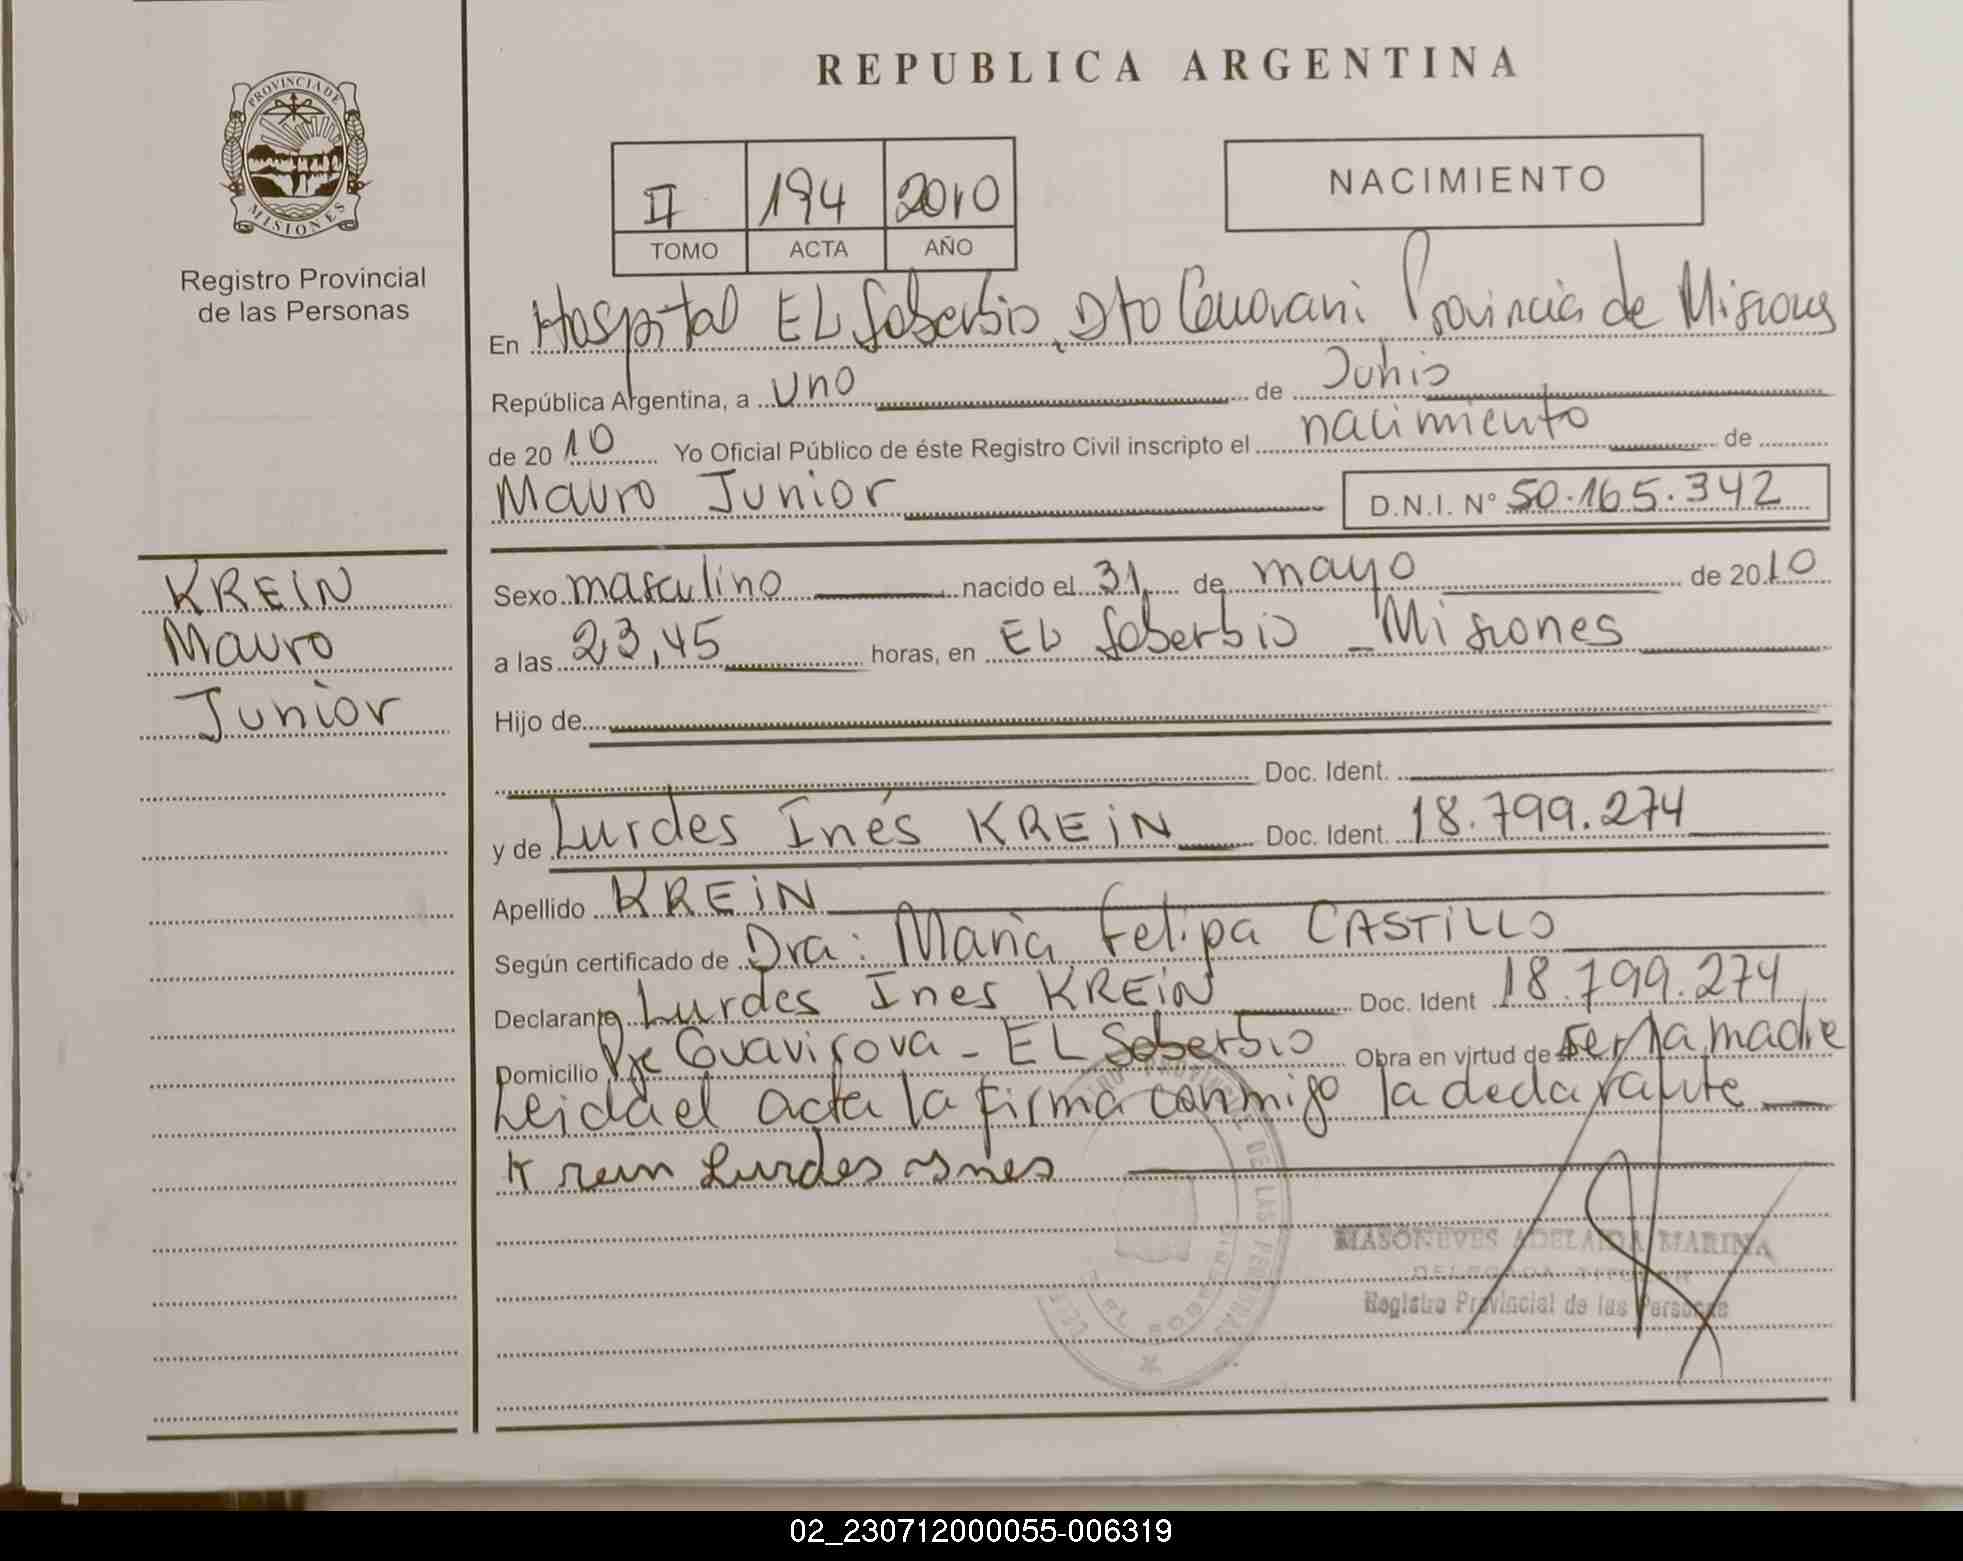 REPUBLICA ARGENTINA
PROVINCIA DE MISIONES
Registro Provincial
de las Personas
II 194 2010
TOMO ACTA AÑO
NACIMIENTO
En Hospital EL Soberbio, Dto Guarani Provincia de Misiones
República Argentina, a uno de Junio
de 2010 Yo Oficial Público de éste Registro Civil inscripto el nacimiento de
Mauro Junior D.N.I. N° 50.165.342
KREIN
Mauro
Junior
Sexo masculino nacido el 31 de mayo de 2010
a las 23,45 horas, en EL Soberbio - Misiones
Hijo de
Doc. Ident.
y de Lurdes Inés KREIN Doc. Ident. 18.799.274
Apellido KREIN
Según certificado de Dra: Maria Felipa CASTILLO
Declarante Lurdes Ines KREIN Doc. Ident 18.799.274
Domicilio Pje Guavirova - EL Soberbio Obra en virtud de ser la madre
Leida el acta la firma conmigo la declarante
Krein Lurdes Ines
MASONEVES ADELAIDA MARINA
DELEGADA TITULAR
Registro Provincial de las Personas
DE LAS PERSONAS
EL SOBERBIO
02_230712000055-006319